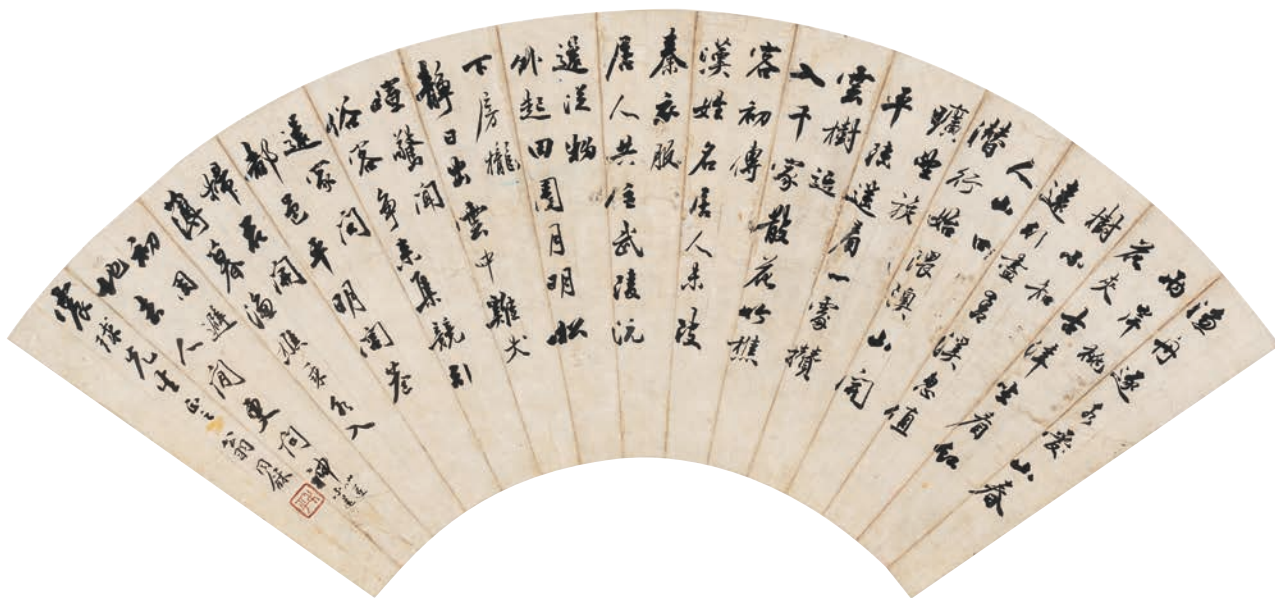 漁舟逐水愛山春
兩岸桃
花夾古津坐看紅
樹不知
遠行盡青溪忽值
人山口
潛行始隈隩山開
曠望旋
平陸遙看一處攢
雲樹近
入千家散花竹樵
客初傳
漢姓名居人未改
秦衣服
居人共住武陵沅
還從物
外起田園月明松
下房櫳
靜日出雲中雞犬
喧驚聞
俗客爭來集競引
還家問
都邑平明閭巷
掃花開
薄暮漁樵乘水入
初因避
地去人間更問神
仙遂不還
球先生正之 翁同龢